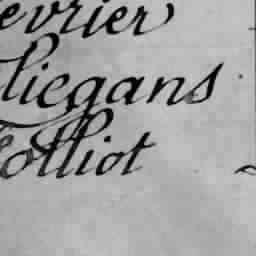 evrier
liegans
folliot